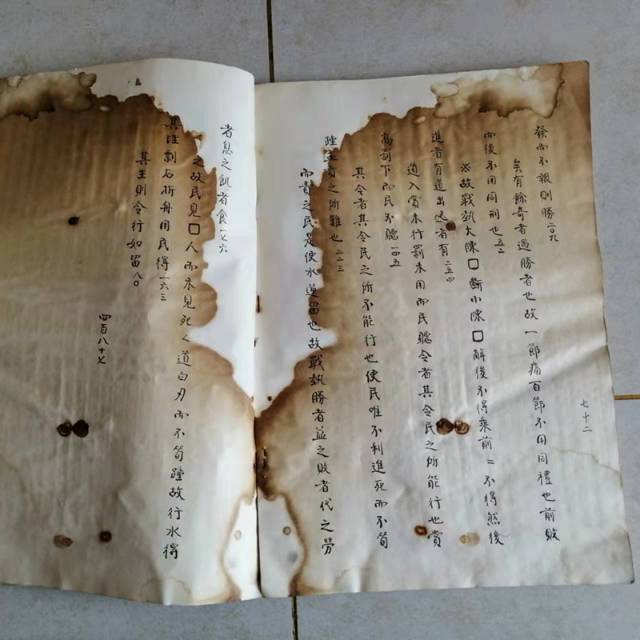 七十二
發而不報則勝二〇九
矣有餘奇者過勝者也故一節痛百節不用同禮也前敗
而後不用同刑也五二
※故戰埶大陳□斷小陳□解後不得乘前=不得然後
進者有道出退者有二五四
道入賞未行罰未用而民聽令者其令民之所能行也賞
高罰下而民不聽一四五
其令者其令民之所不能行也使民唯不利進死而不筍
踵孟賁之所難也二三三
而責之民是使水逆留也故戰埶勝者益之敗者代之勞
者息之飢者食一七六
之故民見□人而未見死之道白刃而不筍踵故行水得
其理剽石折舟用民得一六三
其生則令行如留八〇
四百八十七